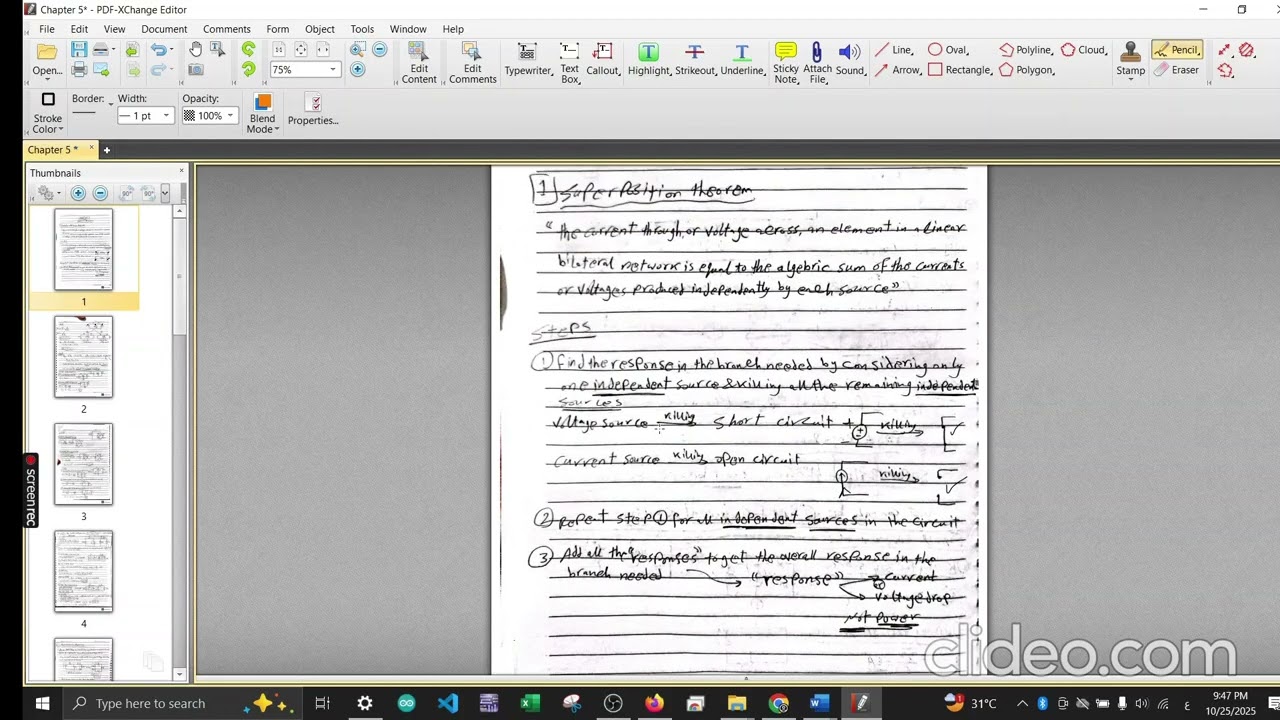 Chapter 5* - PDF-XChange Editor
File Edit View Document Comments Form Object Tools Window Help
Open... 75% Edit Content Edit Comments Typewriter, Text Box, Callout, Highlight, Strikeout, Underline, Sticky Note, Attach File, Sound, Line, Arrow, Oval, Rectangle, Polyline, Polygon, Cloud, Stamp Pencil, Eraser
Stroke Color Border: Width: 1 pt Opacity: 100% Blend Mode Properties...
Chapter 5 *
Thumbnails
1
2
3
4
screen rec
1 Superposition theorem
"the current through, or voltage across, an element in a linear
bilateral network is equal to the algebric sum of the currents
or voltages produced independently by each source"
Steps
① find the response in the branch needed by considering only
one independent source & killing all the remaining independent
sources
voltage source killing short circuit + killing
current source killing open circuit
killing
② repeat step ① for all independent sources in the circuit
③ Add all the "responses" to get the overall response in the
branch needed "response" current
voltage drop
Not power
clideo.com
Type here to search
31°C
9:47 PM
10/25/2025